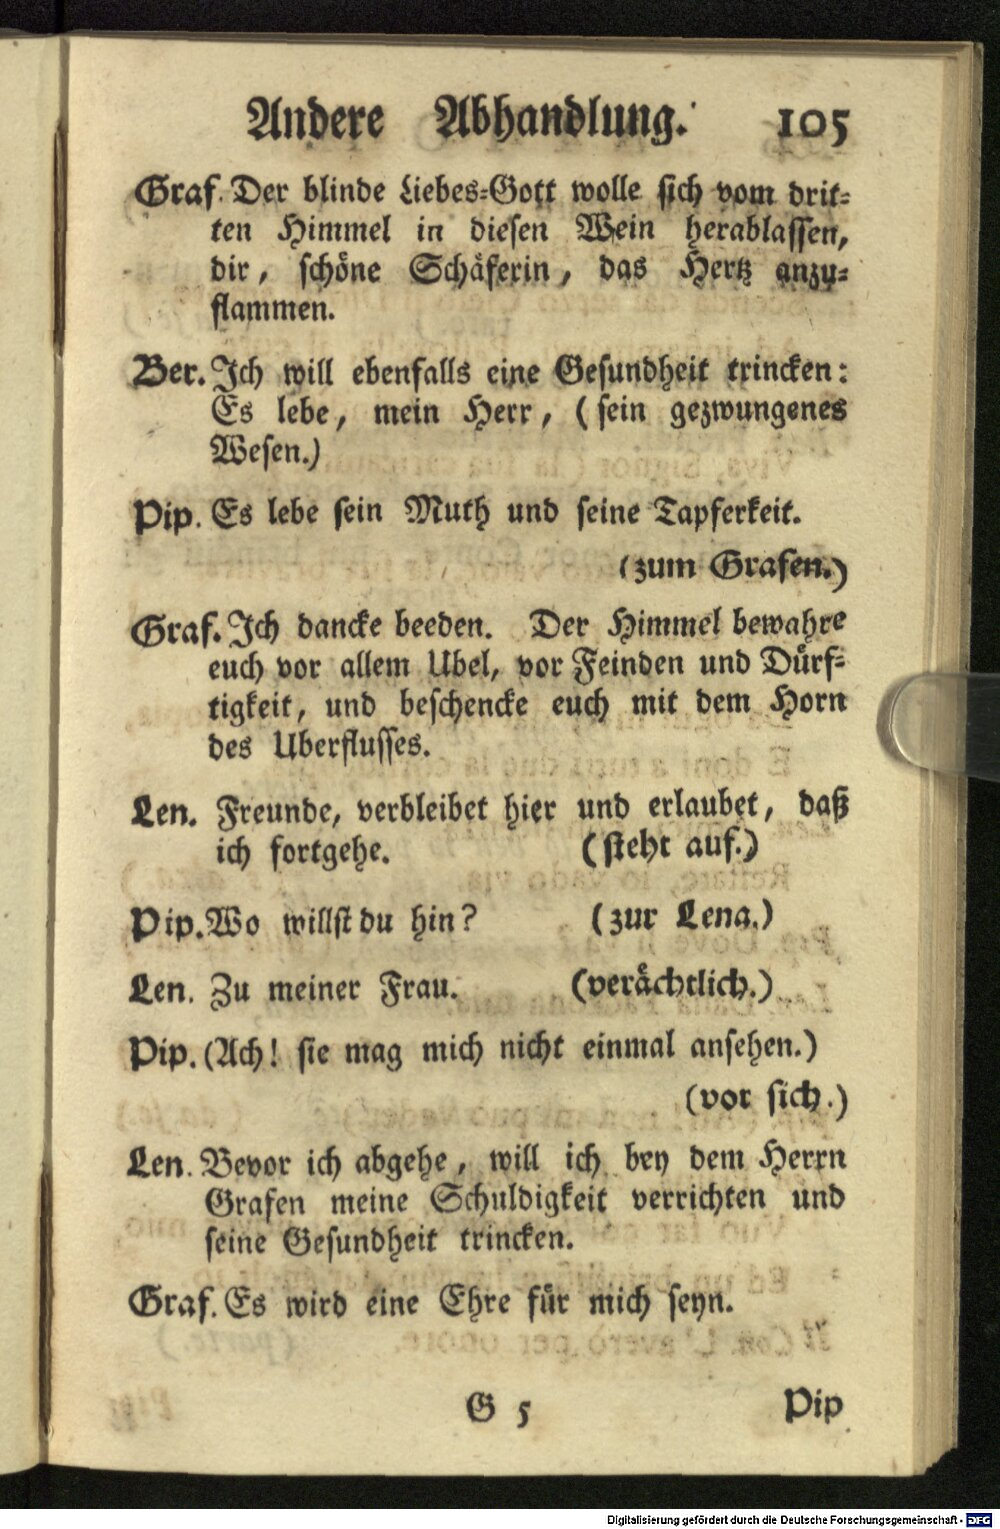 Andere Abhandlung. 105
Graf. Der blinde Liebes-Gott wolle sich vom drit-
ten Himmel in diesen Wein herablassen,
dir, schöne Schäferin, das Hertz anzu-
flammen.
Ber. Ich will ebenfalls eine Gesundheit trincken:
Es lebe, mein Herr, (sein gezwungenes
Wesen.)
Pip. Es lebe sein Muth und seine Tapferkeit.
(zum Grafen.)
Graf. Ich dancke beeden. Der Himmel bewahre
euch vor allem Ubel, vor Feinden und Dürf-
tigkeit, und beschencke euch mit dem Horn
des Uberflusses.
Len. Freunde, verbleibet hier und erlaubet, daß
ich fortgehe. (steht auf.)
Pip. Wo willst du hin? (zur Lena.)
Len. Zu meiner Frau. (verächtlich.)
Pip. (Ach! sie mag mich nicht einmal ansehen.)
(vor sich.)
Len. Bevor ich abgehe, will ich bey dem Herrn
Grafen meine Schuldigkeit verrichten und
seine Gesundheit trincken.
Graf. Es wird eine Ehre für mich seyn.
G 5 Pip
Digitalisierung gefördert durch die Deutsche Forschungsgemeinschaft - DFG